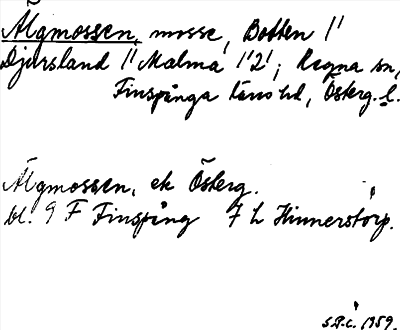 Älgmossen, mosse, Botten 1¹
Djursland 1¹ Malma 1¹2¹; Regna sn,
Finspånga läns hd, Österg. l.
Älgmossen, ek Österg.
bl. 9 F Finspång 7 h Hinnerstorp.
1959.